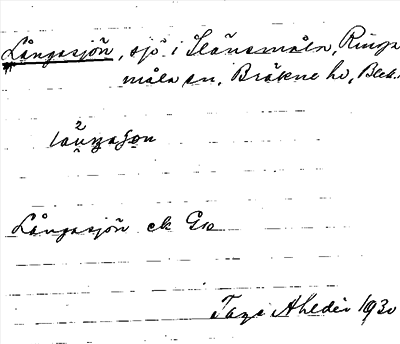 Långasjön, sjö i Slänsmåla, Ringa
måla sn, Bräkne hd, Blek.
Långasjön ek Gs
Tage Ahldén 1930